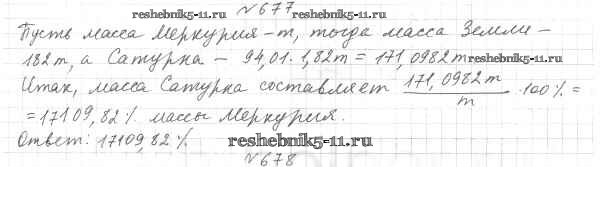 №677
reshebnik5-11.ru
reshebnik5-11.ru
Пусть масса Меркурия – m, тогда масса Земли –
182m, а Сатурка – 94,01 · 1,82m = 171,0982m reshebnik5-11.ru
Итак, масса Сатурка составляет 171,0982m/m · 100% =
= 17109,82% массы Меркурия.
Ответ: 17109,82%. reshebnik5-11.ru
№678